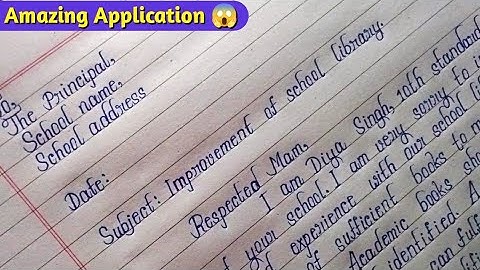 Amazing Application 😱
To,
The Principal,
School name,
School address
Date:
Subject: Improvement of school library.
Respected Mam,
I am Diya Singh, 10th standard
of your school. I am very sorry to
experience with our school
of sufficient books to
Academic books
identified.
can